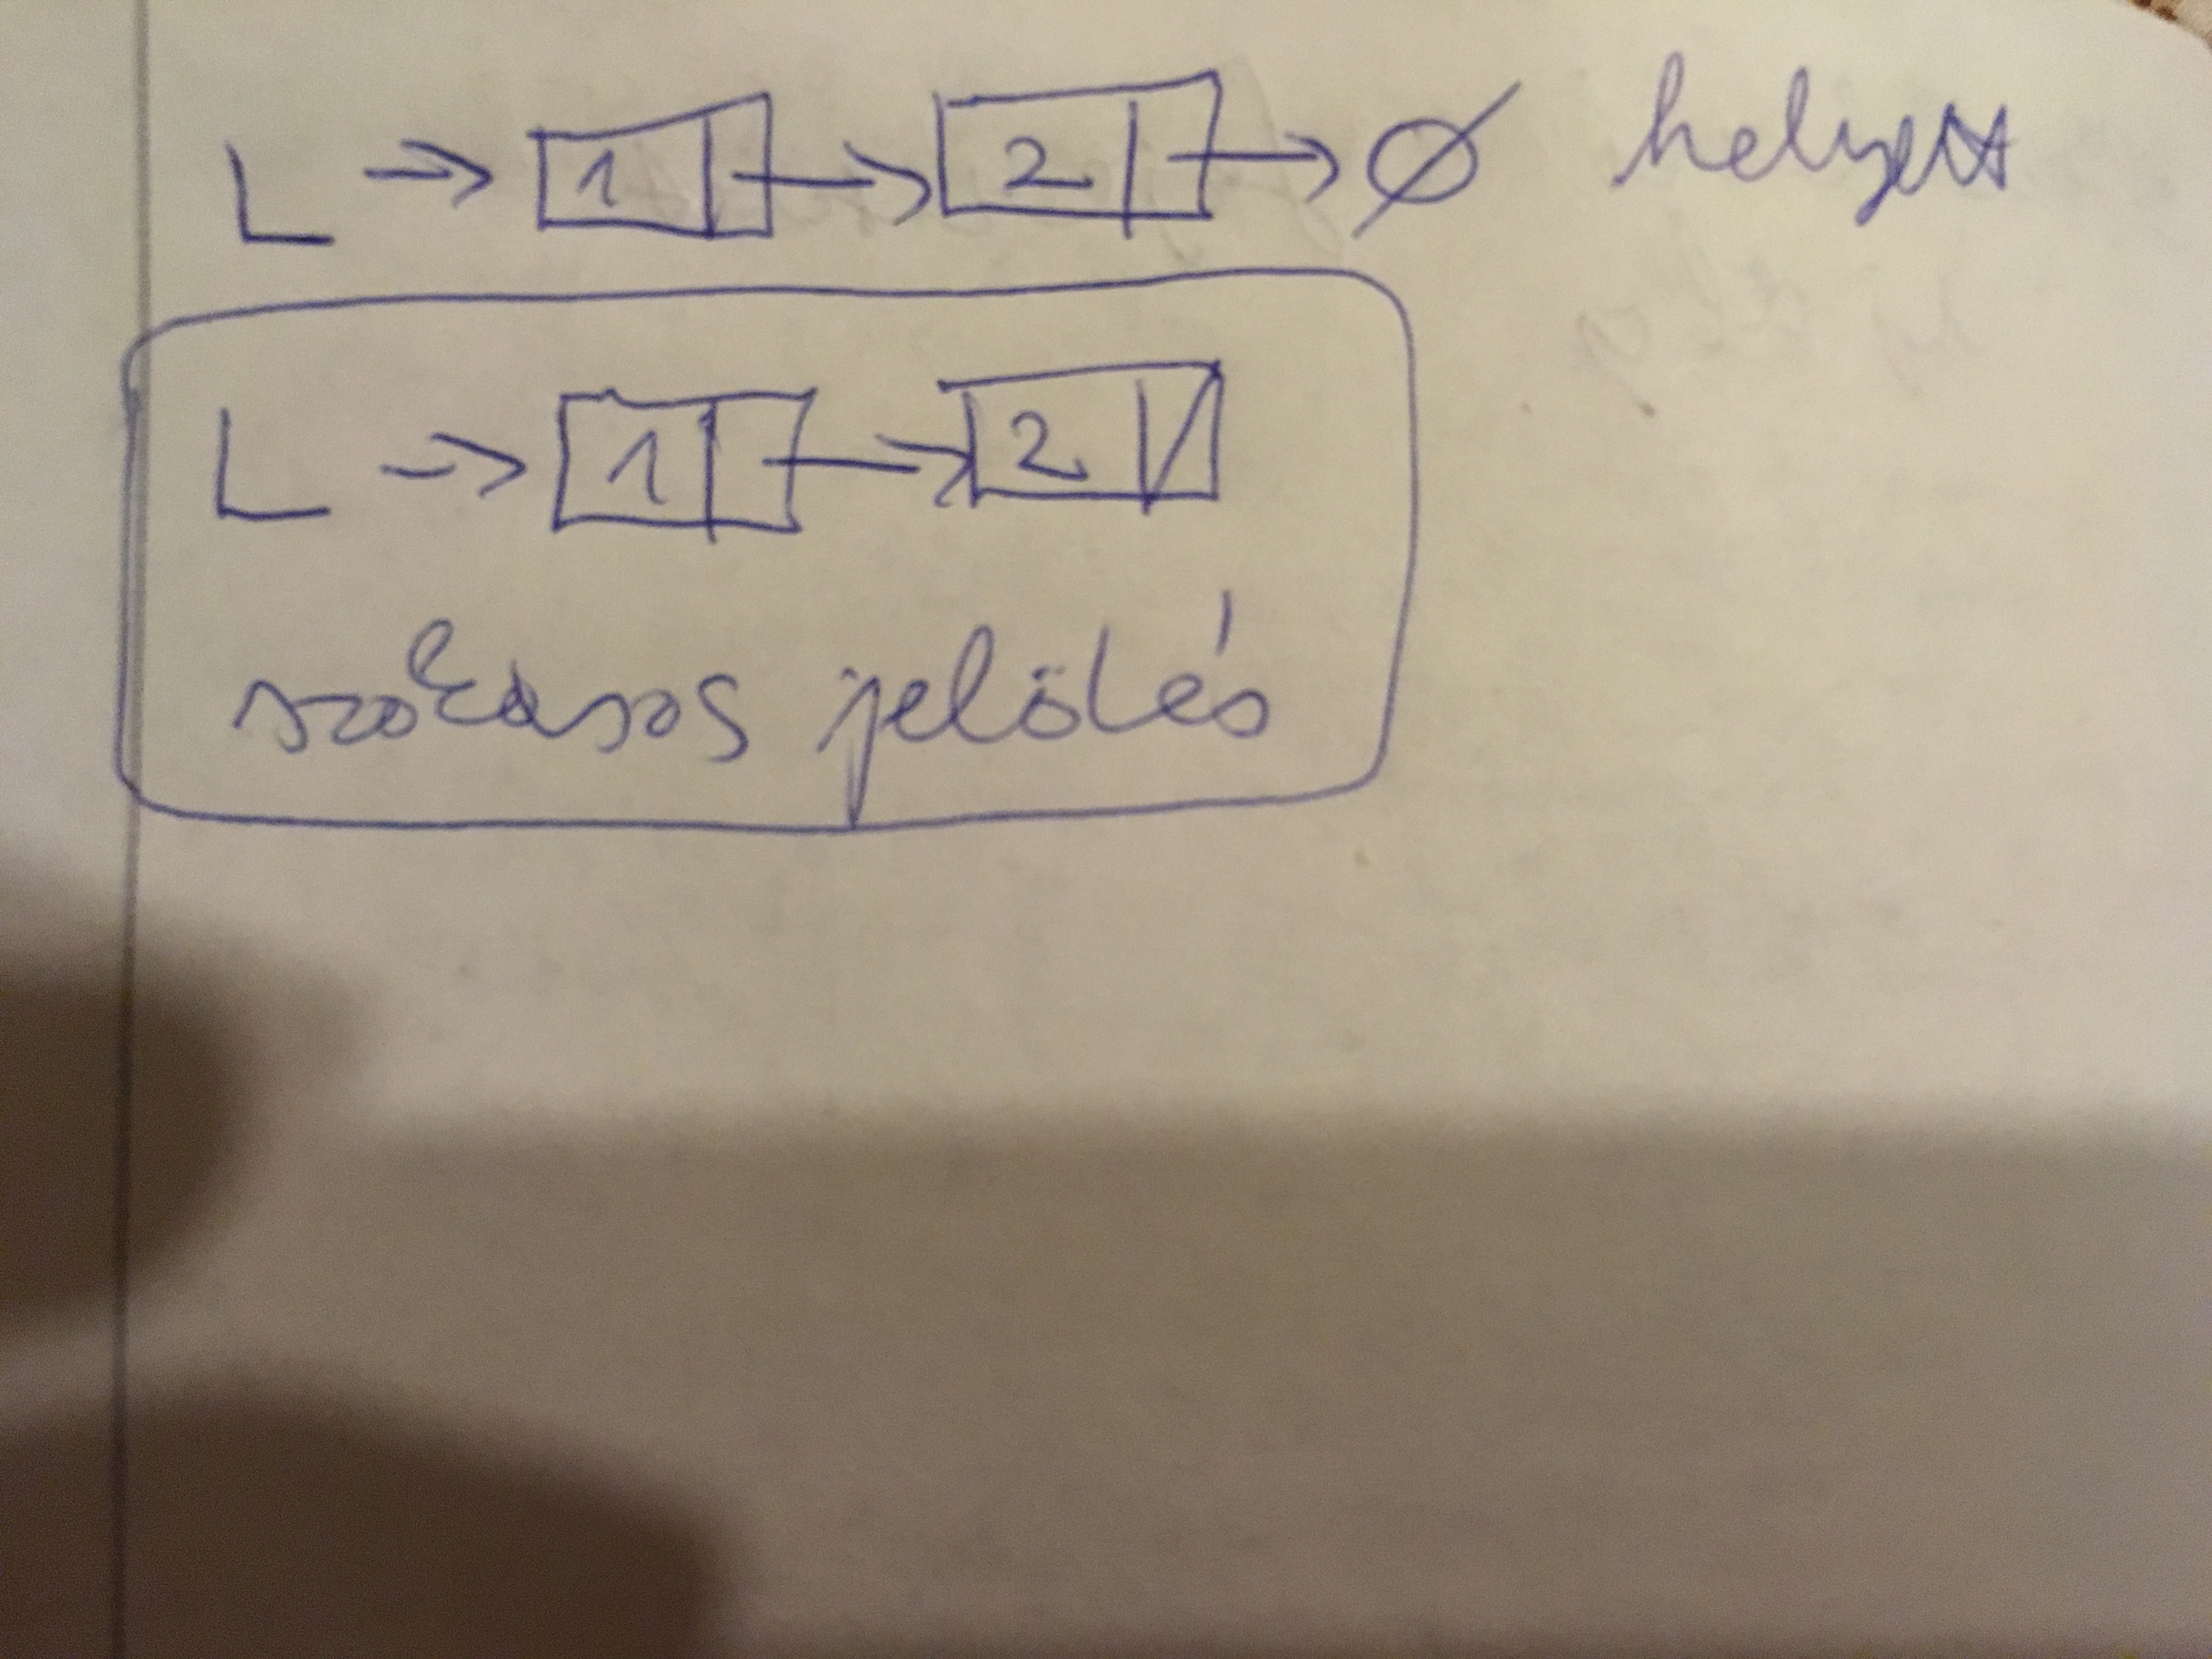 L → 1 → 2 → ∅ helyett
L → 1 → 2
szokásos jelölés